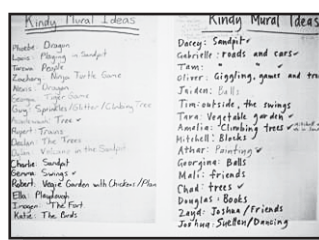 Kindy Mural Ideas
Phoebe: Dragon
Playing in Sandpit
People
Zachary: Ninja Turtle Game
Alexis: Dragon
Tiger Game
Sprinkles/Glitter/Climbing Tree
Tree
Rupert: Trains
The Trees
in the Sandpit
Charlie: Sandpit
Genna: Swings ✓
Robert: Vegie Garden with Chickens/Plan
Ella: Playdough
Imogen: The Fort
Katie: The Birds
Kindy Mural Ideas
Dacey: Sandpit ✓
Gabrielle: roads and cars ✓
Tam: " " ✓
Oliver: Giggling, games and tre
Jaiden: Balls
Tim: outside, the swings
Tara: Vegetable garden ✓
Amelia: Climbing trees ✓
Mitchell: Blocks ✓
Athar: Painting ✓
Georgina: Balls
Mali: friends
Chad: trees ✓
Douglas: Books
Zaya: Joshua/Friends
Joshua: Shelter/Dancing